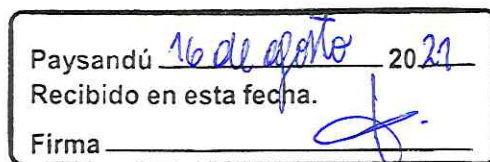 Paysandú 16 de agosto 2021
Recibido en esta fecha.
Firma